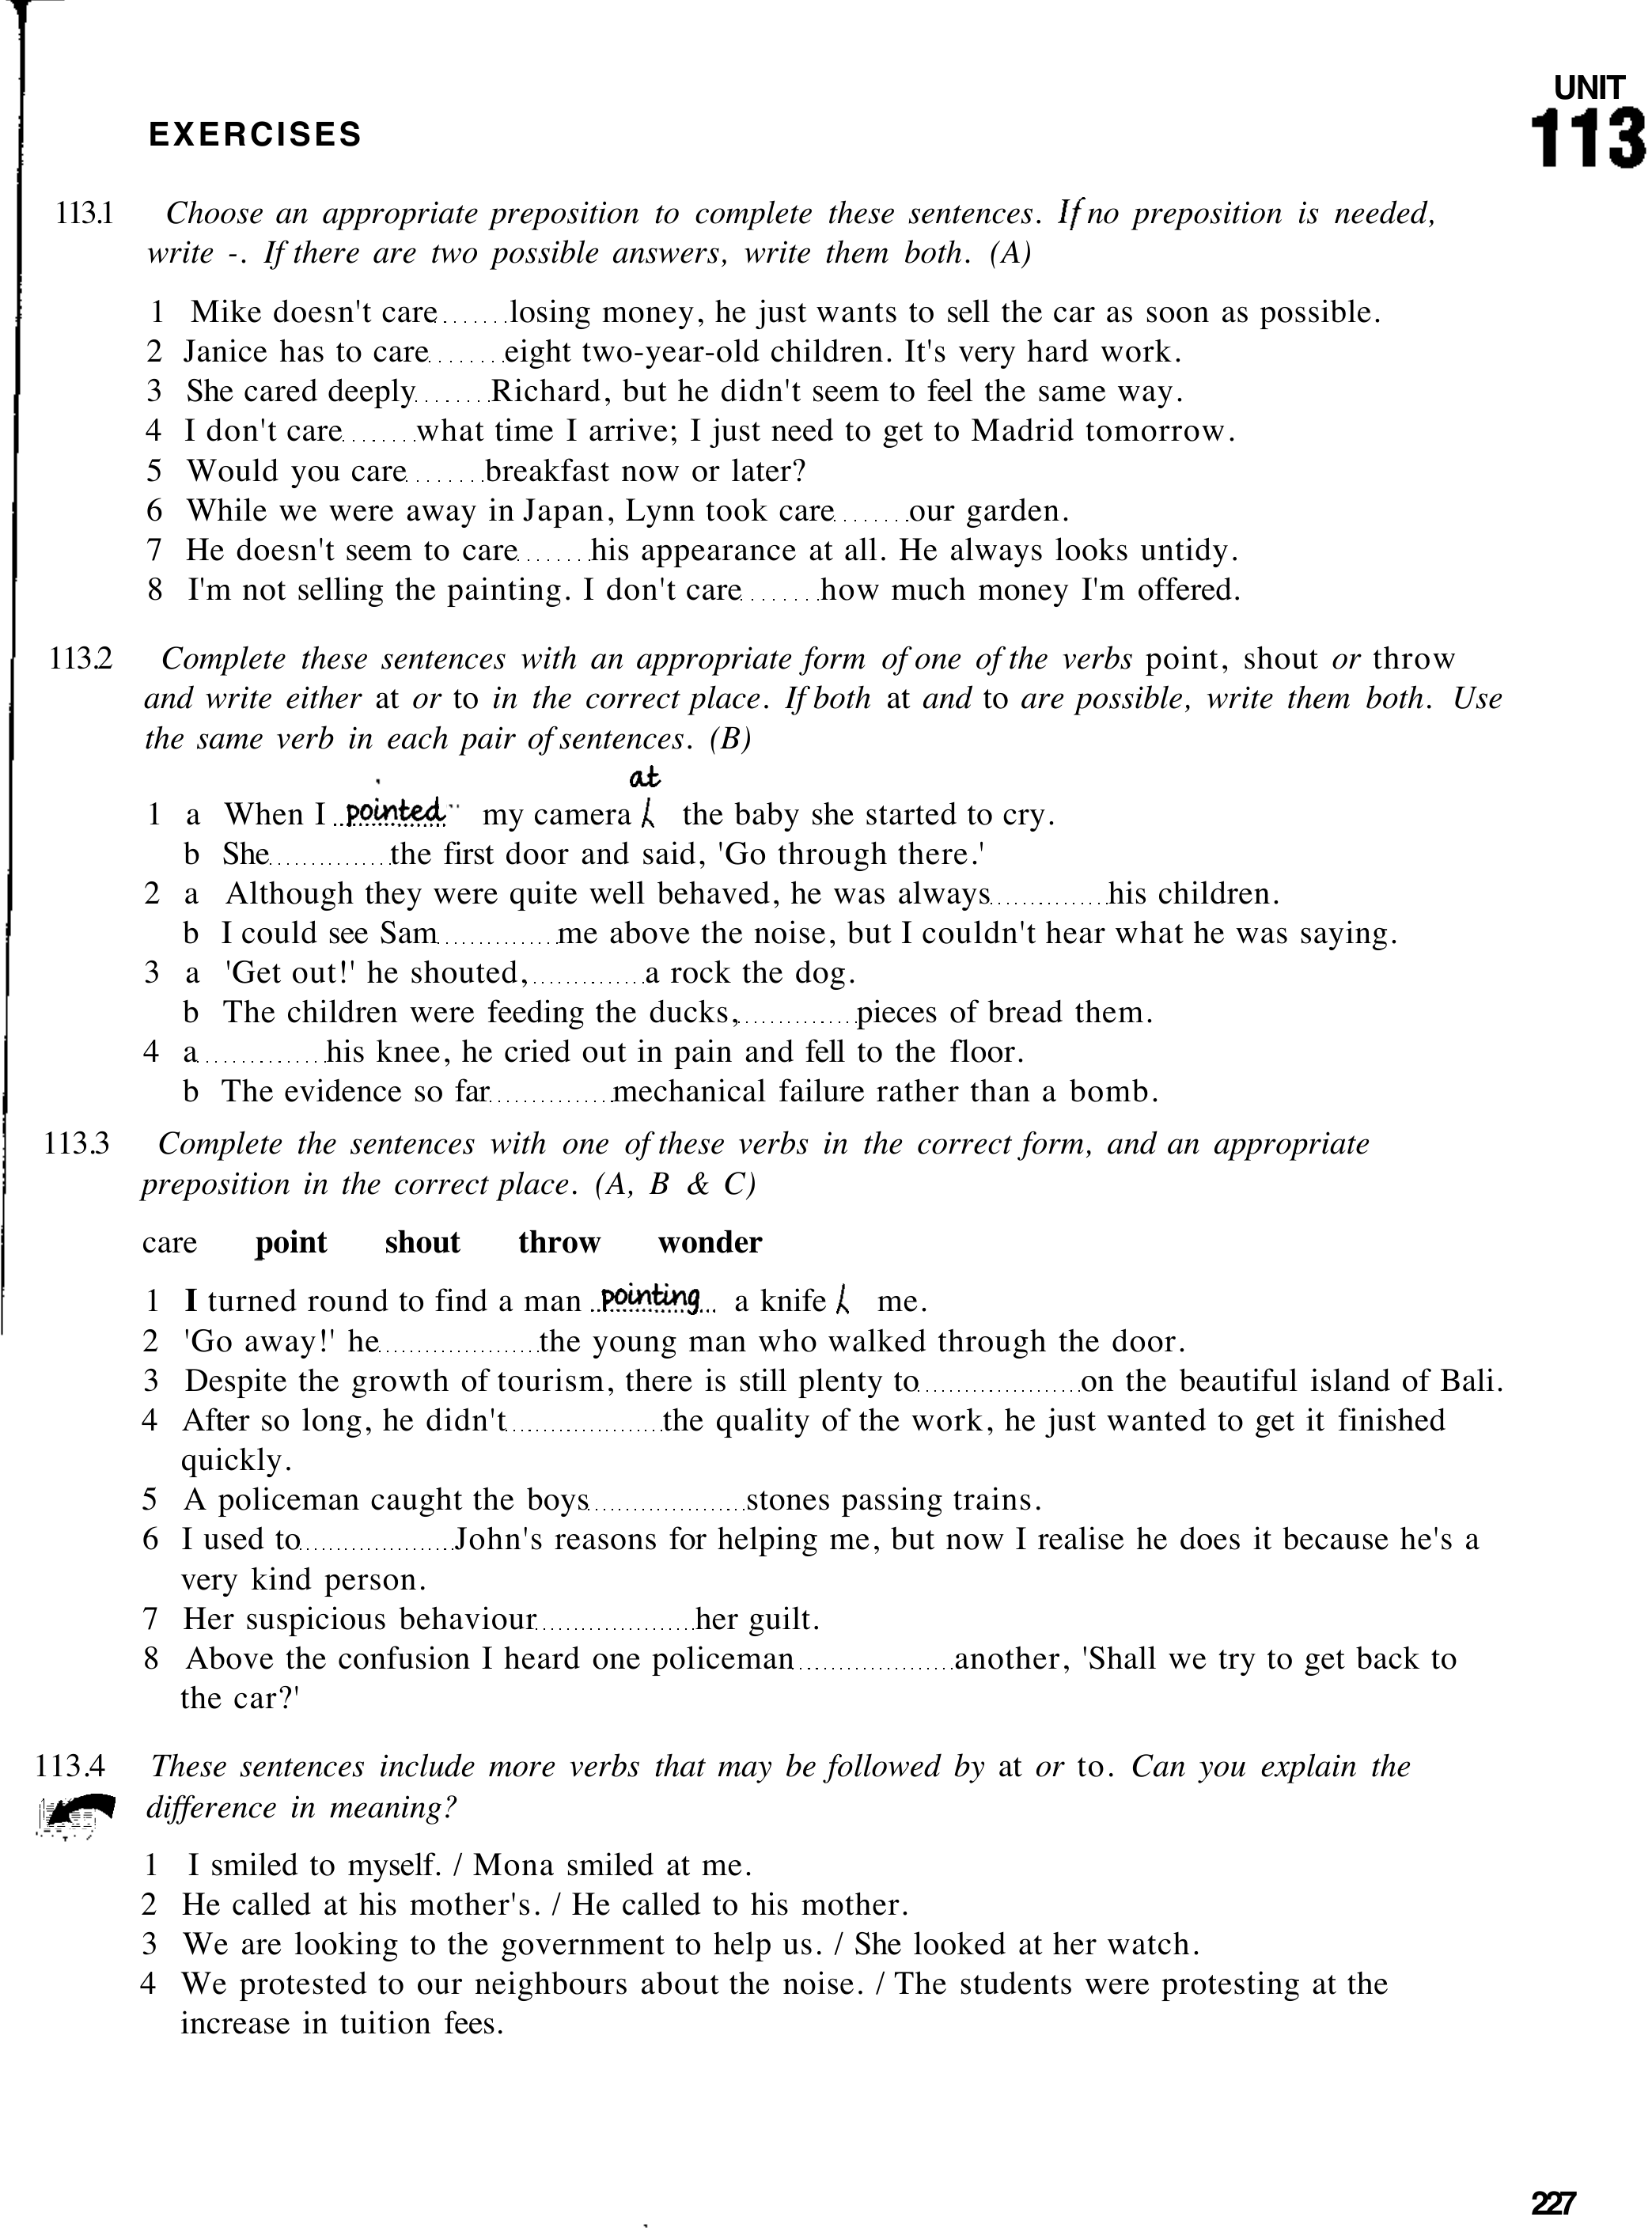 UNIT
113
EXERCISES
113.1 Choose an appropriate preposition to complete these sentences. If no preposition is needed,
write -. If there are two possible answers, write them both. (A)
1 Mike doesn't care........losing money, he just wants to sell the car as soon as possible.
2 Janice has to care........eight two-year-old children. It's very hard work.
3 She cared deeply........Richard, but he didn't seem to feel the same way.
4 I don't care........what time I arrive; I just need to get to Madrid tomorrow.
5 Would you care........breakfast now or later?
6 While we were away in Japan, Lynn took care........our garden.
7 He doesn't seem to care........his appearance at all. He always looks untidy.
8 I'm not selling the painting. I don't care........how much money I'm offered.
113.2 Complete these sentences with an appropriate form of one of the verbs point, shout or throw
and write either at or to in the correct place. If both at and to are possible, write them both. Use
the same verb in each pair of sentences. (B)
at
1 a When I pointed my camera ⁁ the baby she started to cry.
b She..............the first door and said, 'Go through there.'
2 a Although they were quite well behaved, he was always..............his children.
b I could see Sam..............me above the noise, but I couldn't hear what he was saying.
3 a 'Get out!' he shouted,..............a rock the dog.
b The children were feeding the ducks,..............pieces of bread them.
4 a..............his knee, he cried out in pain and fell to the floor.
b The evidence so far..............mechanical failure rather than a bomb.
113.3 Complete the sentences with one of these verbs in the correct form, and an appropriate
preposition in the correct place. (A, B & C)
care point shout throw wonder
1 I turned round to find a man pointing a knife ⁁ me.
2 'Go away!' he....................the young man who walked through the door.
3 Despite the growth of tourism, there is still plenty to....................on the beautiful island of Bali.
4 After so long, he didn't....................the quality of the work, he just wanted to get it finished
quickly.
5 A policeman caught the boys....................stones passing trains.
6 I used to....................John's reasons for helping me, but now I realise he does it because he's a
very kind person.
7 Her suspicious behaviour....................her guilt.
8 Above the confusion I heard one policeman....................another, 'Shall we try to get back to
the car?'
113.4 These sentences include more verbs that may be followed by at or to. Can you explain the
difference in meaning?
1 I smiled to myself. / Mona smiled at me.
2 He called at his mother's. / He called to his mother.
3 We are looking to the government to help us. / She looked at her watch.
4 We protested to our neighbours about the noise. / The students were protesting at the
increase in tuition fees.
227